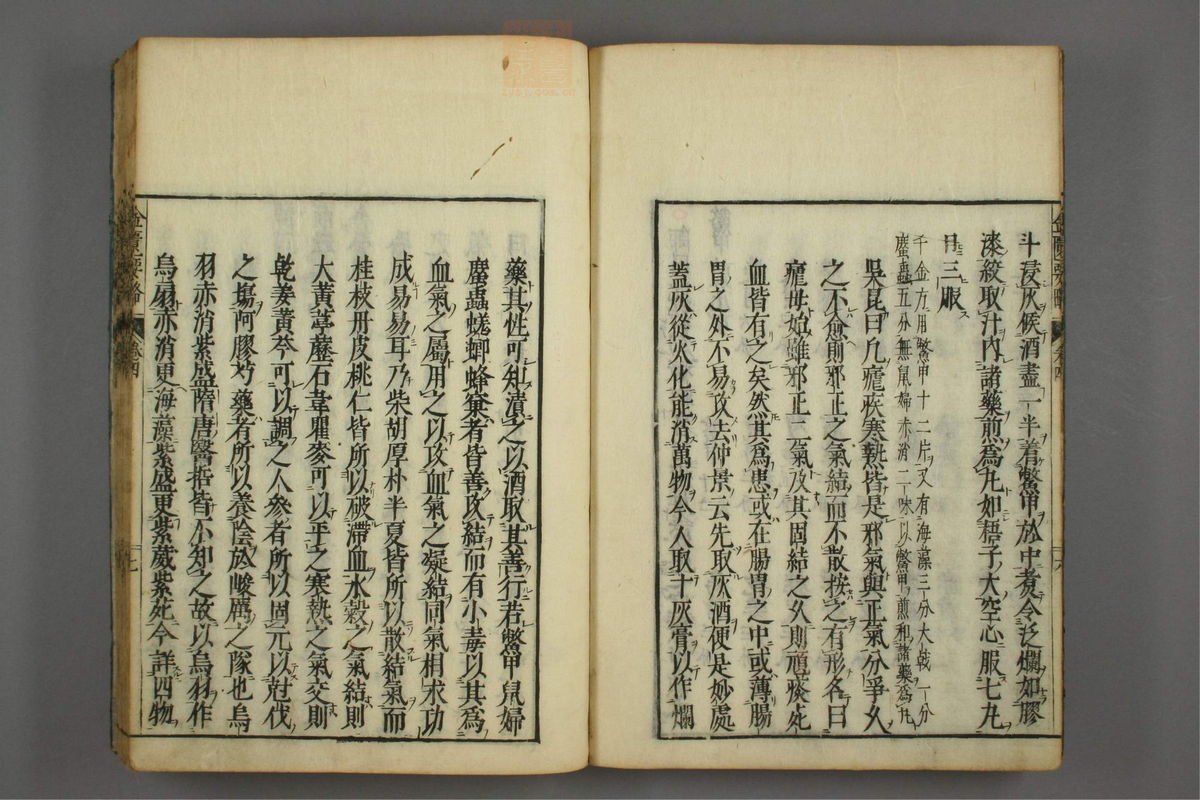 斗浸灰候酒盡一半着鱉甲於中煮令泛爛如膠
漆絞取汁内諸藥煎爲丸如梧子大空心服七丸
日三服
千金方用鱉甲十二片又有海藻三分大戟一分
䗪蟲五分無鼠婦赤消二味以鱉甲煎和諸藥爲丸
吳昆曰凡瘧疾寒熱皆是邪氣與正氣分爭久
之不愈則邪正之氣結而不散按之有形名曰
瘧母始雖邪正二氣及其固結之久則頑痰死
血皆有之矣然其爲患或在腸胃之中或薄腸
胃之外不易攻去仲景云先取灰酒便是妙處
蓋灰從火化能消萬物今人取十灰膏以作爛
藥其性可知漬之以酒取其善行若鱉甲鼠婦
䗪蟲蜣蜋蜂窠者皆善攻結而有小毒以其爲
血氣之屬用之以攻血氣之凝結同氣相求功
成易易耳乃柴胡厚朴半夏皆所以散結氣而
桂枝丹皮桃仁皆所以破滯血水穀之氣結則
大黃葶藶石韋瞿麥可以平之寒熱之氣交則
乾姜黃芩可以調之人參者所以固元以尅伐
之場阿膠芍藥者所以養陰於峻厲之隊也烏
羽赤消紫盛隋唐醫哲皆不知之故以烏羽作
烏扇赤消更海藻紫盛更紫葳紫菀今詳四物
金匱要略
卷四
七
金匱要略
卷四
六